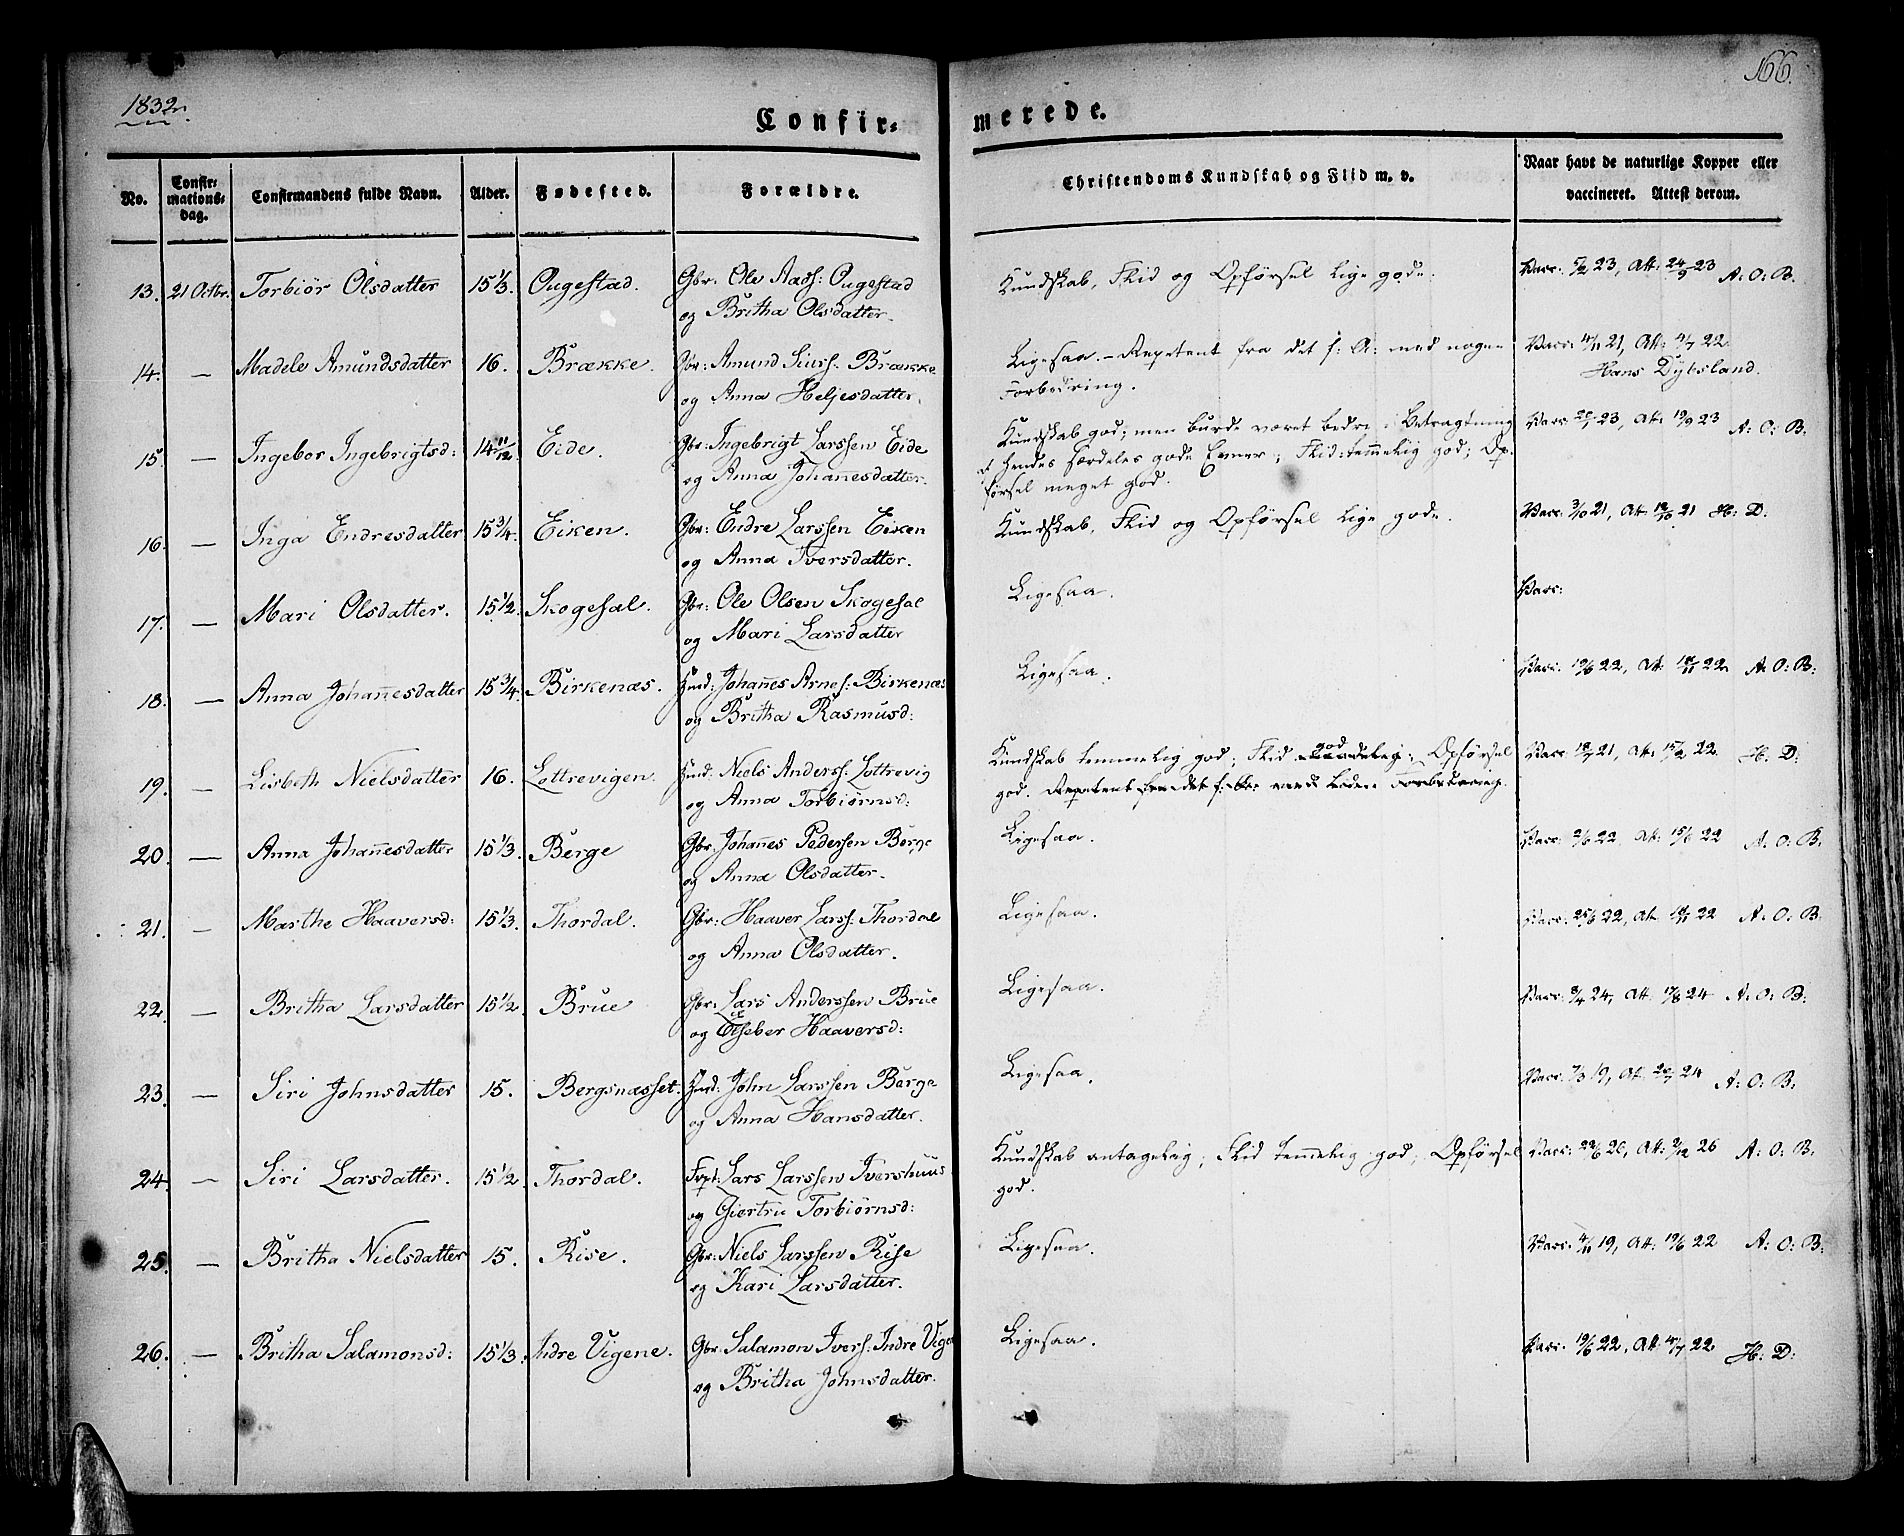 1832.
166.
Confir=
merede.
No.
Confir=
mations=
dag.
Confirmandens fulde Navn.
Alder.
Fødested.
Forældre.
Christendoms Kundskab og Flid m. v.
Naar havt de naturlige Kopper eller
vaccineret. Attest derom.
13. 21 Octbr. Torbiør Olsdatter 15 1/3. Ougestad. Gbr: Ole Aads: Ougestad
og Britha Olsdatter.
Kundskab, Flid og Opførsel lige gode.
Vacc: 5/2 23, Att: 24/9 23 A: O: B.
14. — Madele Amundsdatter 16. Brække. Gbr: Amund Siurs: Brække
og Anna Heljesdatter.
Ligesaa. – Repetent fra det f: A: med nogen
Forbedring.
Vacc: 4/11 21, Att: 4/7 22
Hans Dybsland.
15. — Ingebor Ingebrigtsd: 14 11/12. Eide. Gbr: Ingebrigt Larssen Eide
og Anna Johannesdatter.
Kundskab god; men burde været bedre i Betragtning
af hendes særdeles gode Evner; Flid: temmelig god; Op-
førsel meget god.
23, Att: 19/9 23 A: O: B.
16. — Inga Endresdatter 15 3/4. Eiken. Gbr: Endre Larssen Eiken
og Anna Iversdatter.
Kundskab, Flid og Opførsel lige gode.
Vacc: 3/10 21, Att: 12/10 21 H: D.
17. — Mari Olsdatter. 15 1/2. Skogesal. Gbr: Ole Olsen Skogesal
og Mari Larsdatter
Ligesaa.
Vacc:
18. — Anna Johannesdatter 15 3/4. Birkenæs. Huusd: Johannes Arnes: Birkenæs
og Britha Rasmusd:
Ligesaa.
Vacc: 19/6 22, Att: 22 A: O: B:
19. — Lisbeth Nielsdatter 16. Lottrevigen. Huusd: Niels Anderss: Lottrevig
og Anna Torbiørnsd:
Kundskab temmelig god; Flid god; Opførsel
god. Repetent fra det f: med liden Forbedring.
21, Att: 22 H: D:
20. — Anna Johannesdatter 15 1/3. Berge Gbr: Johannes Pederssen Berge
og Anna Olsdatter.
Ligesaa.
Vacc: 2/6 22, Att: 15/6 22 A: O: B.
21. — Marthe Haaversd: 15 1/3. Thordal. Gbr: Haaver Larss: Thordal
og Anna Olsdatter.
Ligesaa.
Vacc: 25/6 22, Att: 22 A: O: B.
22. — Britha Larsdatter 15 1/2. Brue Gbr: Lars Anderssen Brue
og Elseber Haaversd:
Ligesaa.
Vacc: 9/4 24, Att: 24 A: O: B:
23. — Siri Johnsdatter 15. Bergsnæsset. Huusd: John Larssen Berge
og Anna Hansdatter.
Ligesaa.
Vacc: 7/3 19, Att: 24 A: O: B.
24. — Siri Larsdatter. 15 1/2. Thordal. Fvpt: Lars Larssen Ivershuus
og Giertru Torbiørnsd:
Kundskab antagelig; Flid temmelig god; Opførsel
god.
Vacc: 22/6 26, Att: 2/12 26 A: O: B.
25. — Britha Nielsdatter 15. Rise. Gbr: Niels Larssen Rise
og Kari Larsdatter.
Ligesaa.
Vacc: 4/11 19, Att: 19/6 22 A: O: B:
26. — Britha Salamonsd: 15 1/3. Indre Vigene. Gbr: Salamon Ivers: Indre Vige
og Britha Johnsdatter.
Ligesaa.
Vacc: 19/6 22, Att: 4/7 22 H: D: